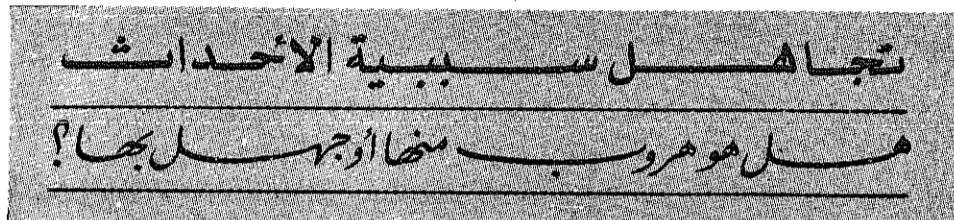 تجاهل سببية الأحداث
هل هو هروب منها أو جهل بها ؟